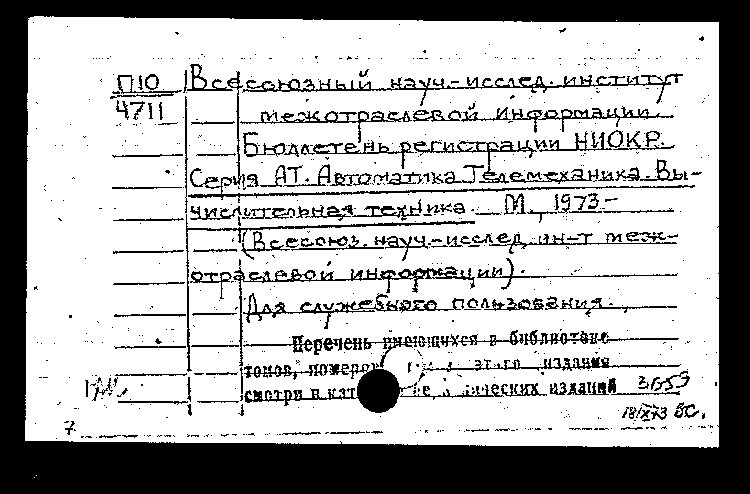 П10 Всесоюзный науч.-исслед. институт
4711 межотраслевой информации.
Бюллетень регистрации НИОКР.
Серия АТ. Автоматика. Телемеханика. Вы-
числительная техника. М., 1973-
(Всесоюз. науч.-исслед. ин-т меж-
отраслевой информации).
Для служебного пользования.
Перечень имеющихся в библиотеке
томов, номеров этого издания
смотри в изданий
7